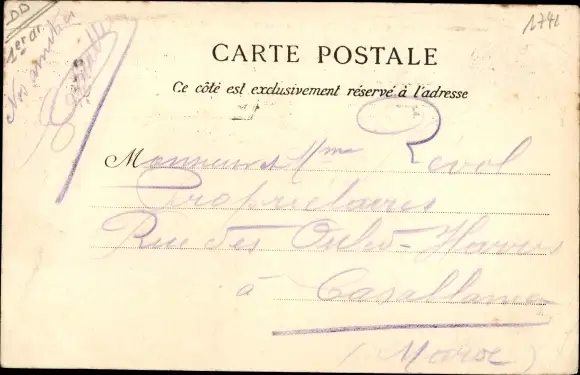 DD
1er dr.
1741
Nos amitiés
CARTE POSTALE
Ce côté est exclusivement réservé à l'adresse
Monsieur et Mme Revol
Propriétaires
Rue des
à Casablanca
(Maroc)